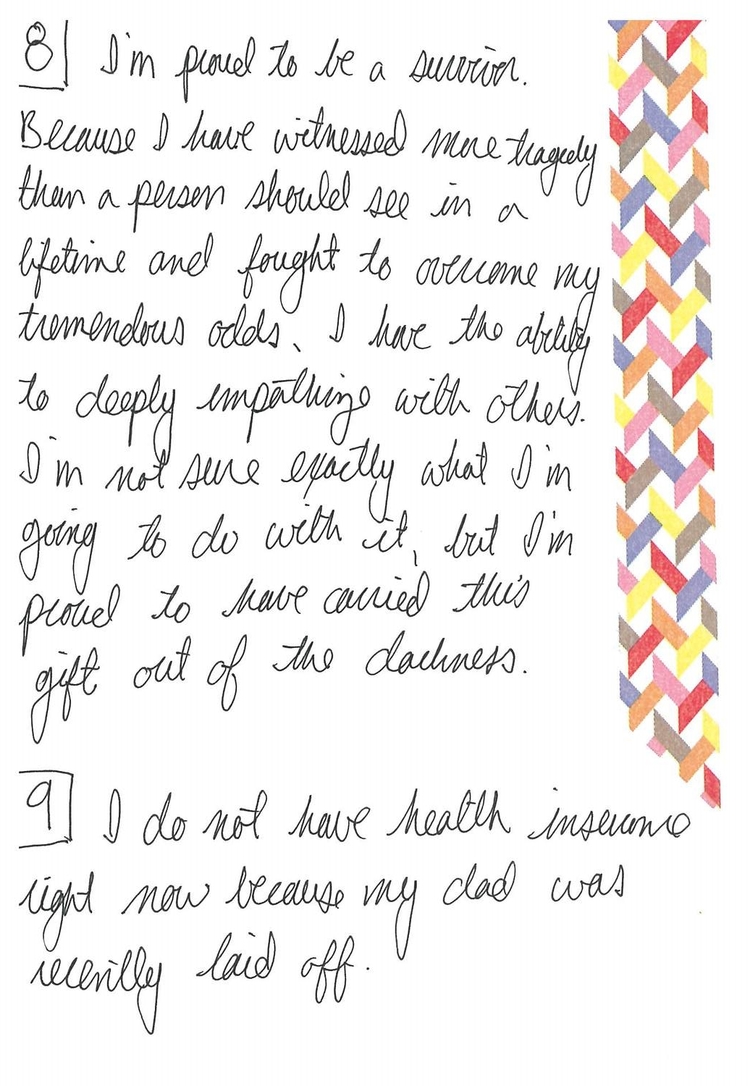 8 I'm proud to be a survivor.
Because I have witnessed more tragedy
than a person should see in a
lifetime and fought to overcome my
tremendous odds, I have the ability
to deeply empathize with others.
I'm not sure exactly what I'm
going to do with it, but I'm
proud to have carried this
gift out of the darkness.
9 I do not have health insurance
right now because my dad was
recently laid off.